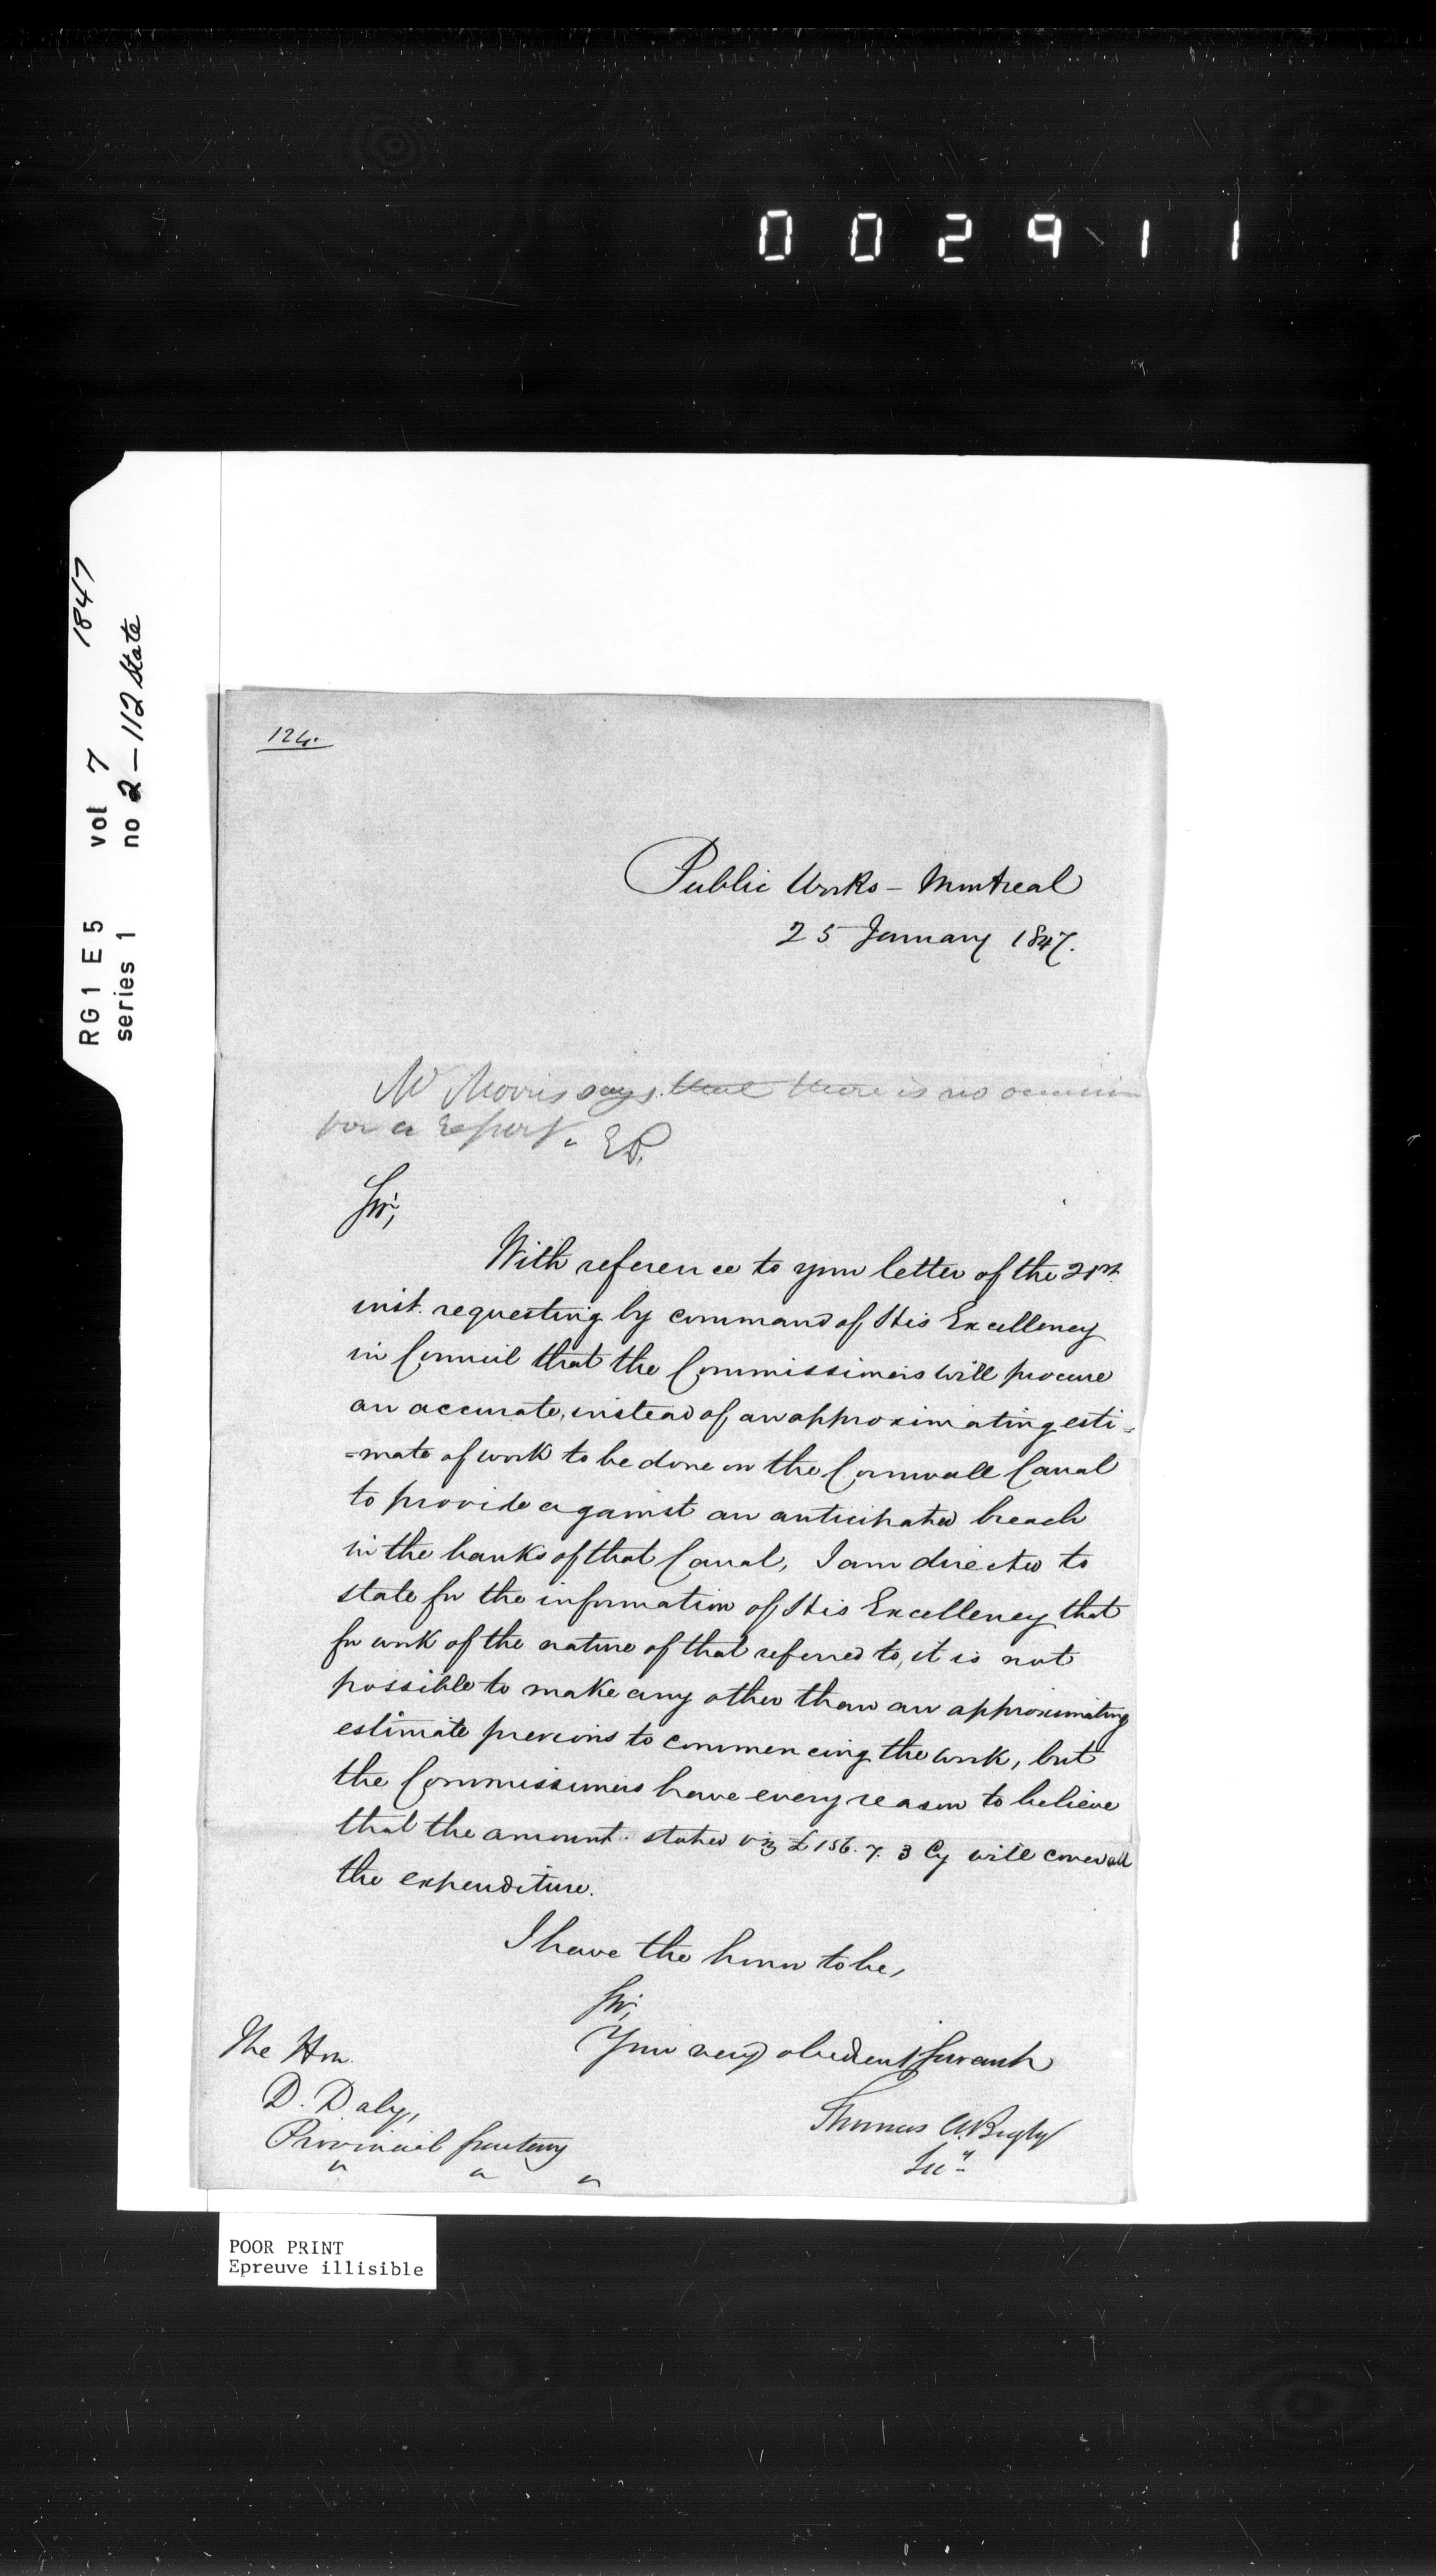 002911
RG1 E5 vol 7 1847
series 1 no 2-112 State
124.
Public Works - Montreal
25 January 1847.
Mr Morris says that there is no occasion
for a Report.
Sir,
With reference to your letter of the 21st
inst. requesting by command of His Excellency
in Council that the Commissioners will procure
an accurate, instead of an approximating esti=
=mate of work to be done on the Cornwall Canal
to provide against an anticipated breach
in the banks of that Canal, I am directed to
state for the information of His Excellency that
for work of the nature of that referred to, it is not
possible to make any other than an approximating
estimate previous to commencing the work, but
the Commissioners have every reason to believe
that the amount stated viz £156. 7. 3 Cy will cover all
the expenditure.
I have the honor to be,
Sir,
Your very obedient Servant
Thomas A Begly
Secy
The Hon.
D. Daly,
Provincial Secretary
" " "
POOR PRINT
Epreuve illisible